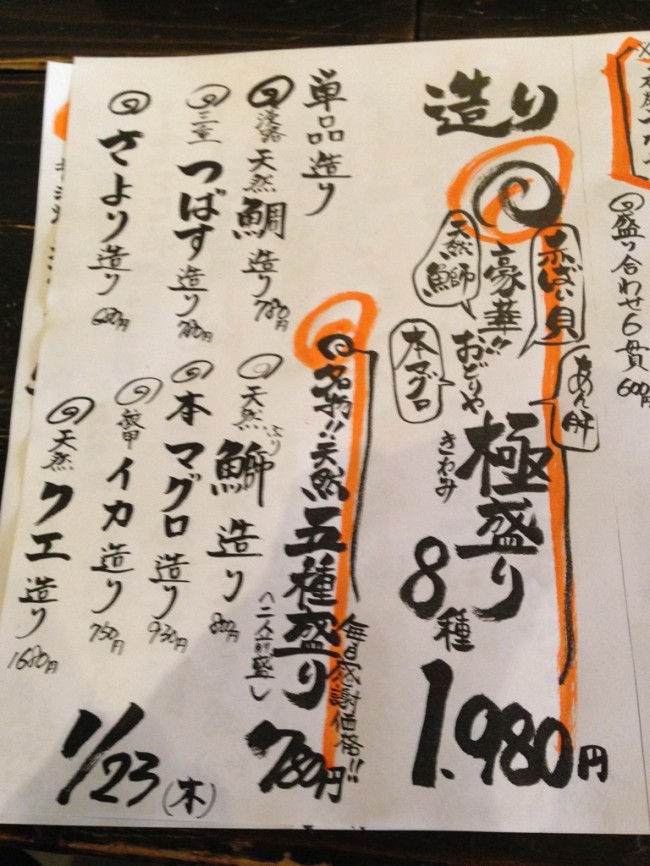 盛り合わせ6貫
600円
造り
赤ばい貝
あん肝
豪華!!
天然鰤
本マグロ
おどりや
極盛り
きわみ
8種
1.980円
名物!!天然
五種盛り
毎日感謝価格!!
(二人前盛し
780円
単品造り
淡路
天然鯛造り
780円
三重
つばす造り
780円
さより造り
680円
天然
鰤造り
ぶり
880円
本マグロ造り
930円
紋甲
イカ造り
750円
天然
クエ造り
1680円
1/23(木)